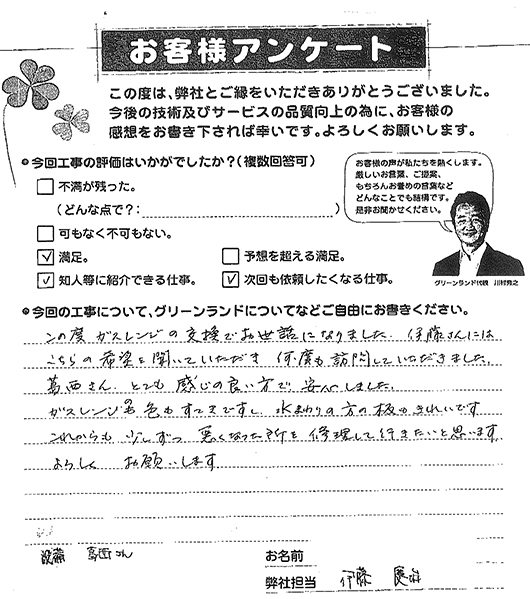 お客様アンケート
この度は、弊社とご縁をいただきありがとうございました。
今後の技術及びサービスの品質向上の為に、お客様の
感想をお書き下されば幸いです。よろしくお願いします。
今回工事の評価はいかがでしたか?(複数回答可)
不満が残った。
(どんな点で?: )
可もなく不可もない。
満足。
予想を超える満足。
知人等に紹介できる仕事。
次回も依頼したくなる仕事。
お客様の声が私たちを熱くします。
厳しいお言葉、ご提案、
もちろんお誉めの言葉など
どんなことでも結構です。
是非お聞かせください。
グリーンランド代表 川村秀之
今回の工事について、グリーンランドについてなどご自由にお書きください。
この度ガスレンジの交換でお世話になりました。伊藤さんには
こちらの希望を聞いていただき 何度も訪問していただきました。
葛西さん、とても感じの良い方で安心しました。
ガスレンジの色もすてきですし、水まわりの方の板もきれいです
これからも少しずつ悪くなった所を修理して行きたいと思います。
よろしく お願いします
設備 葛西さん
お名前
弊社担当 伊藤